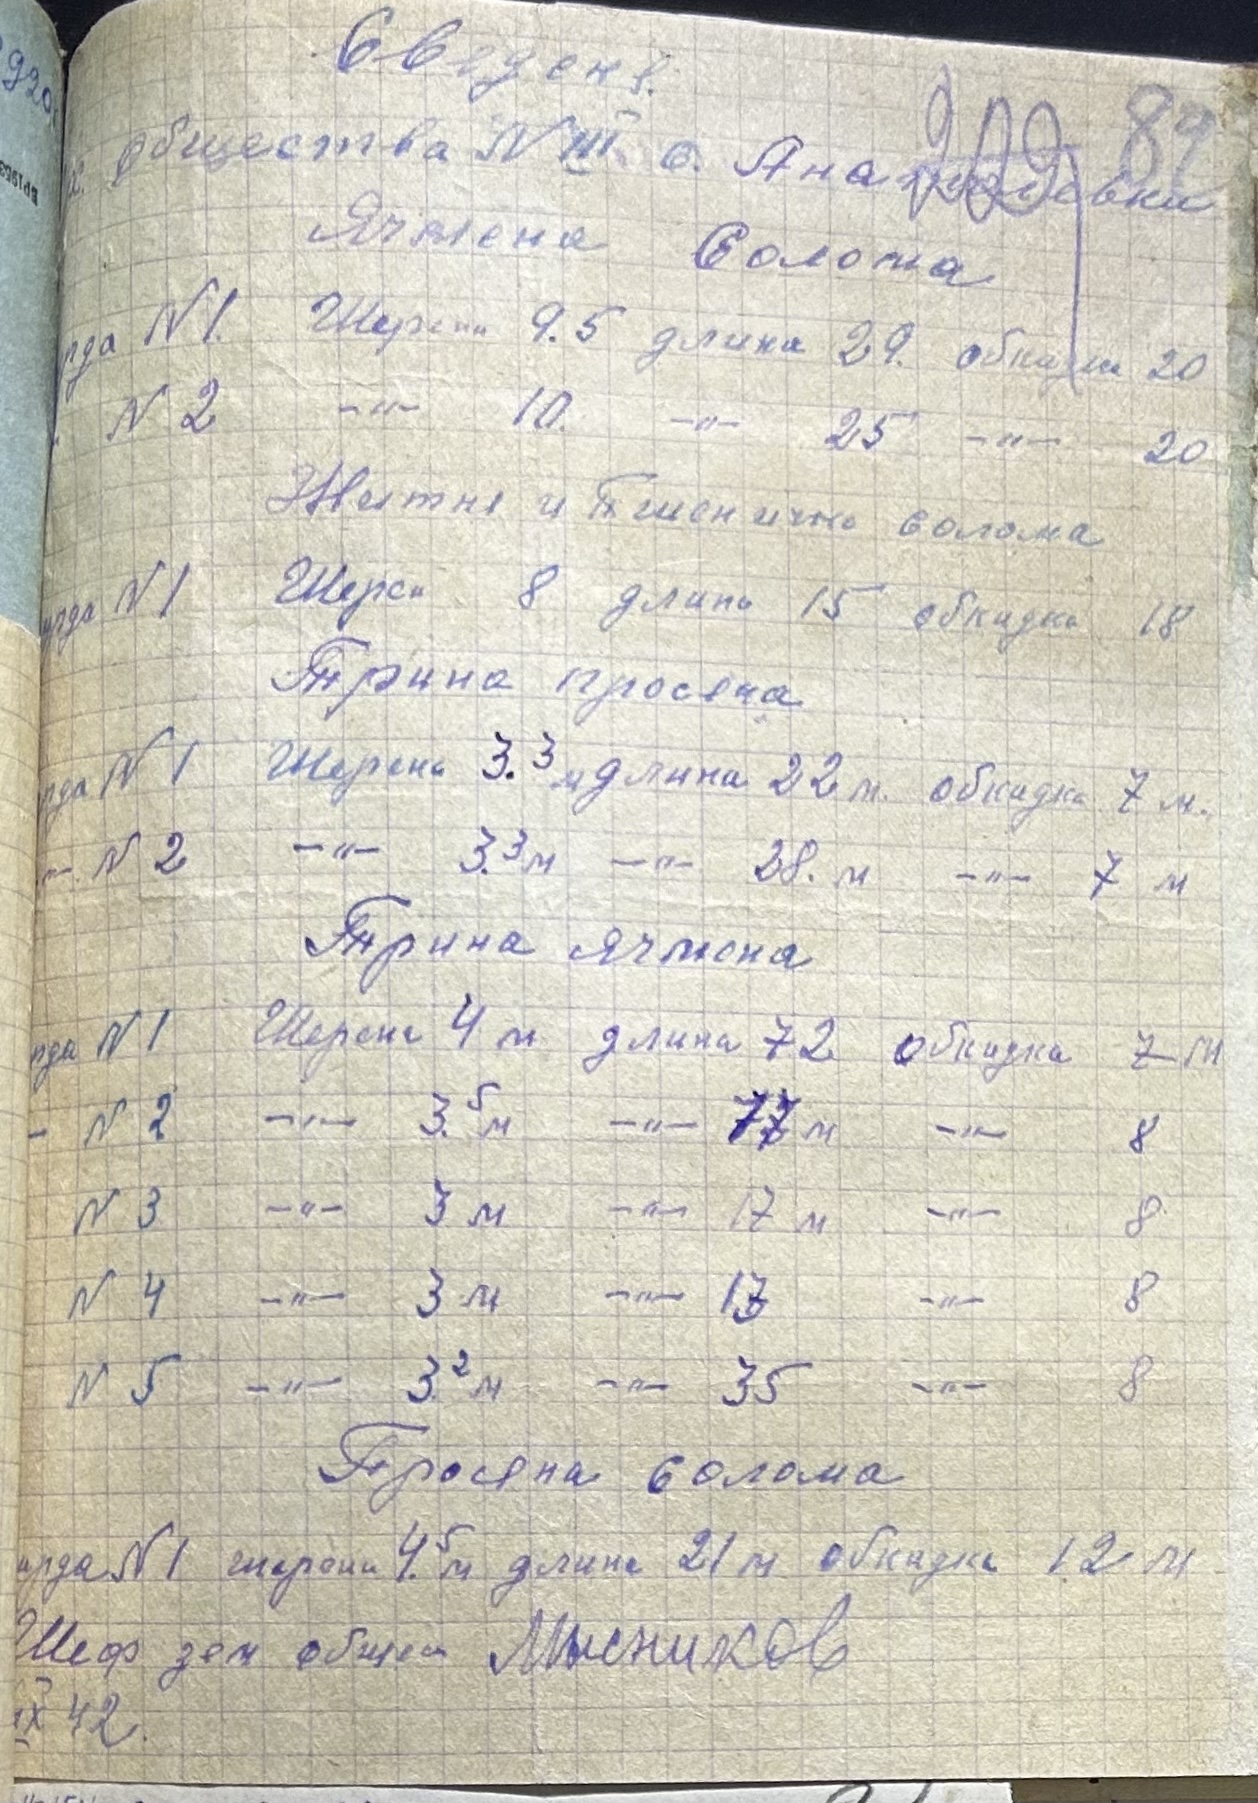 Сведен я.
89
209
х. Общества N III с. Анатасьевки
Ячмена Солома
рда N1. Шерена 9.5 длина 29. обкидка 20
N 2 -"- 10. -"- 25 -"- 20
и Пшенична солома
ирда N1 Шере 8 длина 15 обкидка 18
Трина просяна
рда N1 Шерена 3.3 м длина 22 м. обкидка 7 м.
-"- N 2 -"- 3.3 м -"- 28. м -"- 7 м
Трина ячмена
рда N1 Шерена 4 м длина 72 обкидка 7 м
- N 2 -"- 3.5 м -"- 77 м -"- 8
N 3 -"- 3 м -"- 17 м -"- 8
N 4 -"- 3 м -"- 13 -"- 8
N 5 -"- 3.2 м -"- 35 -"- 8
Просяна солома
ирда N1 шерена 4.5 м длина 21 м обкидка 12 м
Шеф зем общест Мысников
IX 42.